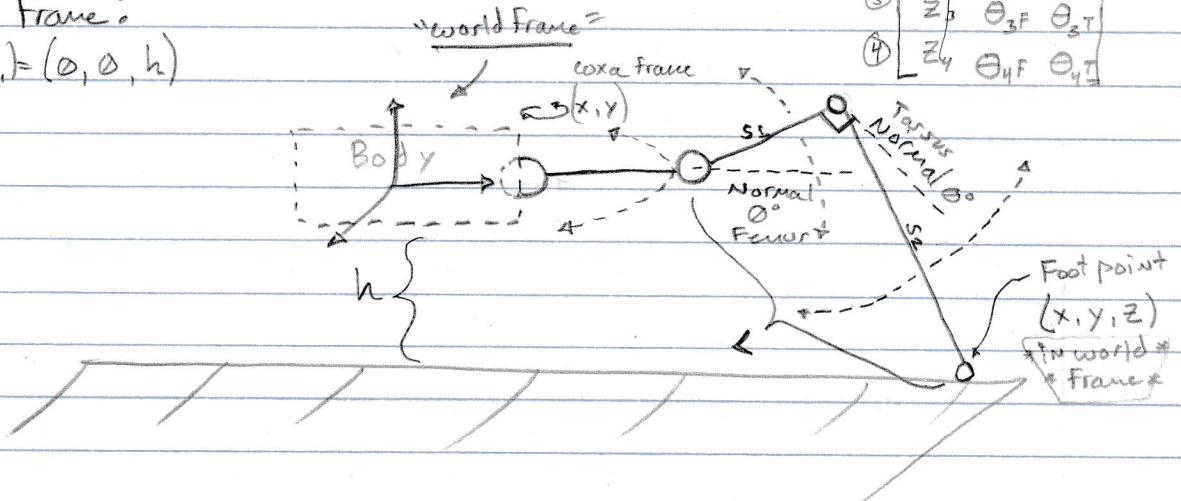 Frame:
,)=(0, 0, h)
③ Z3 θ3F θ3T
④ Z4 θ4F θ4T
"world Frame"
coxa frame
(x,y)
Body
S1
Tarsus
Normal
0°
Normal
0°
Femur
S2
h
L
Foot point
(x,y,z)
*in world*
*Frame*